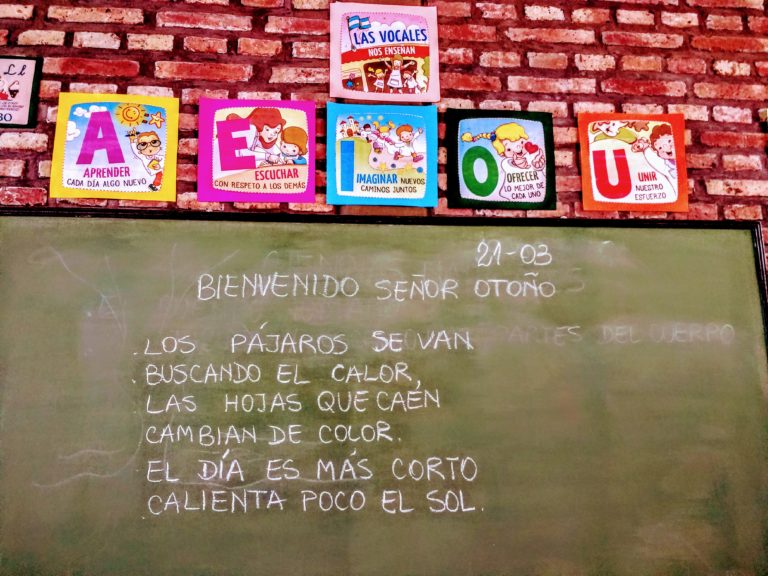 LAS VOCALES
NOS ENSEÑAN
Ll
BO
A
APRENDER
CADA DÍA ALGO NUEVO
E
ESCUCHAR
CON RESPETO A LOS DEMÁS
I
IMAGINAR NUEVOS
CAMINOS JUNTOS
O
OFRECER
LO MEJOR DE
CADA UNO
U
UNIR
NUESTRO
ESFUERZO
21-03
BIENVENIDO SEÑOR OTOÑO
PARTES DEL CUERPO
.LOS PÁJAROS SE VAN
.BUSCANDO EL CALOR,
LAS HOJAS QUE CAÉN
CAMBIAN DE COLOR.
EL DÍA ES MÁS CORTO
CALIENTA POCO EL SOL.